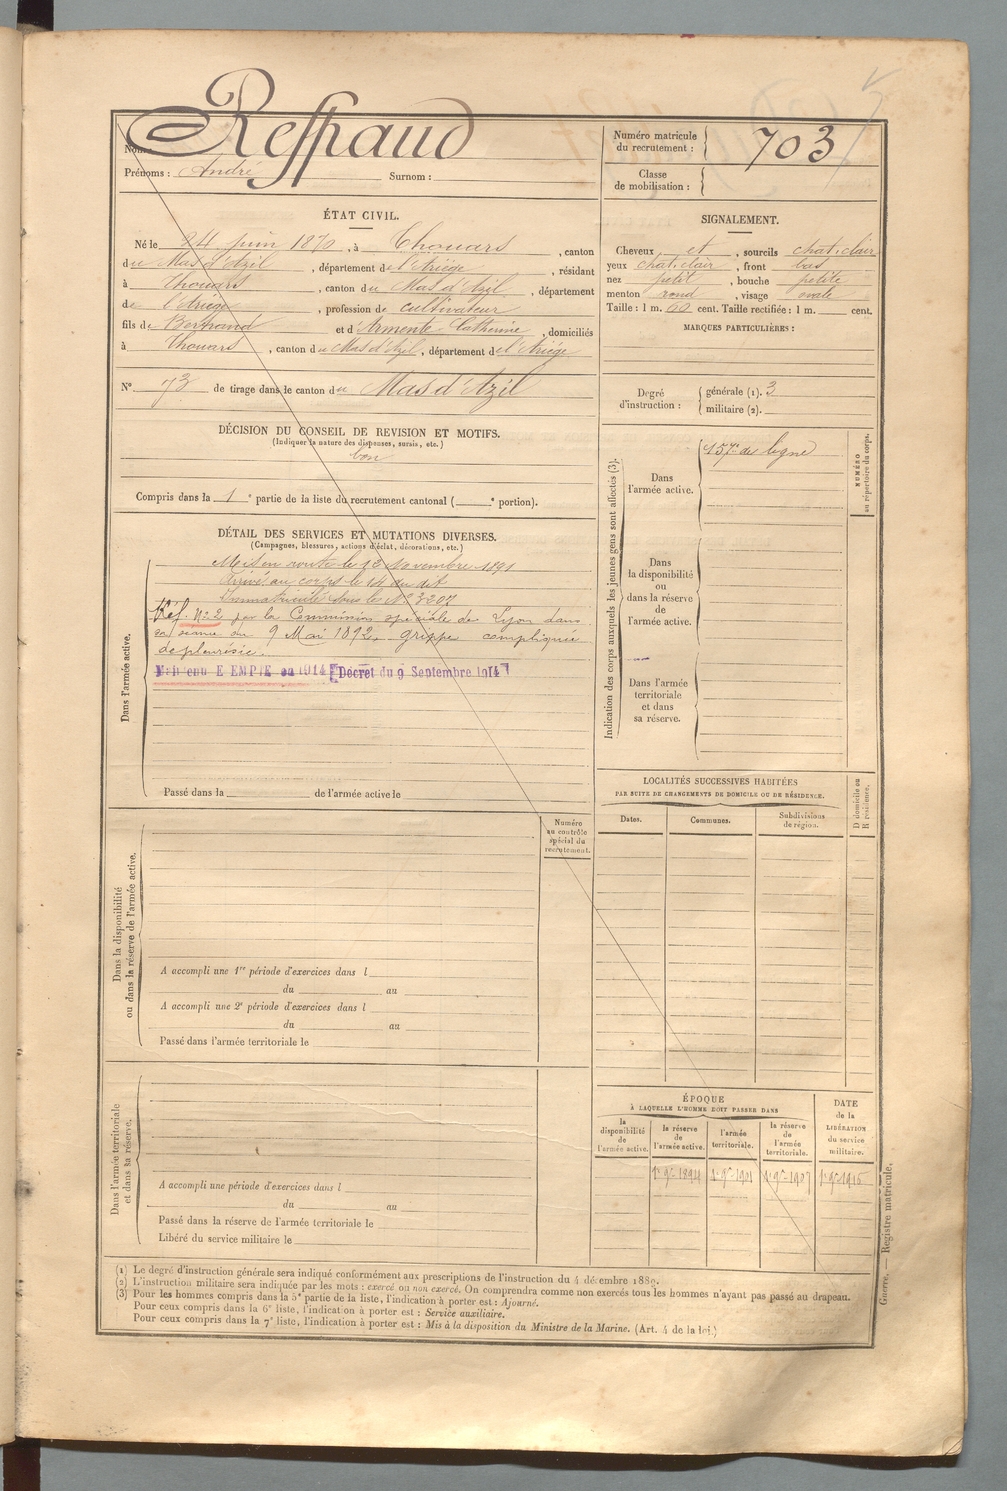 Respaud
Nom :
Prénoms : André Surnom :
Numéro matricule du recrutement : 703
Classe de mobilisation :
ÉTAT CIVIL.
Né le 24 juin 1870, à Thouars, canton
du Mas d'Azil, département de l'Ariège, résidant
à Thouars, canton du Mas d'Azil, département
de l'Ariège, profession de cultivateur
fils de Bertrand et d'Armente Catherine, domiciliés
à Thouars, canton du Mas d'Azil, département de l'Ariège
N° 73 de tirage dans le canton du Mas d'Azil
SIGNALEMENT.
Cheveux et, sourcils chat. clair
yeux chat. clair, front bas
nez petit, bouche petite
menton rond, visage ovale
Taille : 1 m. cent. Taille rectifiée : 1 m. cent.
MARQUES PARTICULIÈRES :
Degré d'instruction : générale (1). 3
militaire (2).
DÉCISION DU CONSEIL DE REVISION ET MOTIFS.
(Indiquer la nature des dispenses, sursis, etc.)
bon
Compris dans la 1e partie de la liste du recrutement cantonal ( e portion).
DÉTAIL DES SERVICES ET MUTATIONS DIVERSES.
(Campagnes, blessures, actions d'éclat, décorations, etc.)
Dans l'armée active.
Mis en route le Novembre 1891
Arrivé au corps le 14 du dit
Immatriculé sous le N° 3207
Réf. N° 2 par la Commission spéciale de Lyon dans
sa séance du 9 Mai 1892. grippe compliquée
de pleurésie.
Maintenu EXEMPTÉ en 1914 [Décret du 9 Septembre 1914]
Passé dans la de l'armée active le
Indication des corps auxquels les jeunes gens sont affectés (3).
Dans l'armée active.
157e de ligne
NUMÉRO au répertoire du corps.
Dans la disponibilité ou dans la réserve de l'armée active.
Dans l'armée territoriale et dans sa réserve.
LOCALITÉS SUCCESSIVES HABITÉES
PAR SUITE DE CHANGEMENTS DE DOMICILE OU DE RÉSIDENCE.
Dates. Communes. Subdivisions de région. D domicile ou R résidence.
Numéro au contrôle spécial du recrutement.
Dans la disponibilité ou dans la réserve de l'armée active.
A accompli une 1re période d'exercices dans l
du au
A accompli une 2e période d'exercices dans l
du au
Passé dans l'armée territoriale le
Dans l'armée territoriale et dans sa réserve.
A accompli une période d'exercices dans l
du au
Passé dans la réserve de l'armée territoriale le
Libéré du service militaire le
ÉPOQUE
À LAQUELLE L'HOMME DOIT PASSER DANS
la disponibilité de l'armée active. la réserve de l'armée active. l'armée territoriale. la réserve de l'armée territoriale.
DATE de la LIBÉRATION du service militaire.
1er 9bre 1894 1er 9bre 1901 1er 9bre 1907 1er 9bre 1916
Guerre. — Registre matricule.
(1) Le degré d'instruction générale sera indiqué conformément aux prescriptions de l'instruction du 4 décembre 1889.
(2) L'instruction militaire sera indiquée par les mots : exercé ou non exercé. On comprendra comme non exercés tous les hommes n'ayant pas passé au drapeau.
(3) Pour les hommes compris dans la 5e partie de la liste, l'indication à porter est : Ajourné.
Pour ceux compris dans la 6e liste, l'indication à porter est : Service auxiliaire.
Pour ceux compris dans la 7e liste, l'indication à porter est : Mis à la disposition du Ministre de la Marine. (Art. 4 de la loi.)